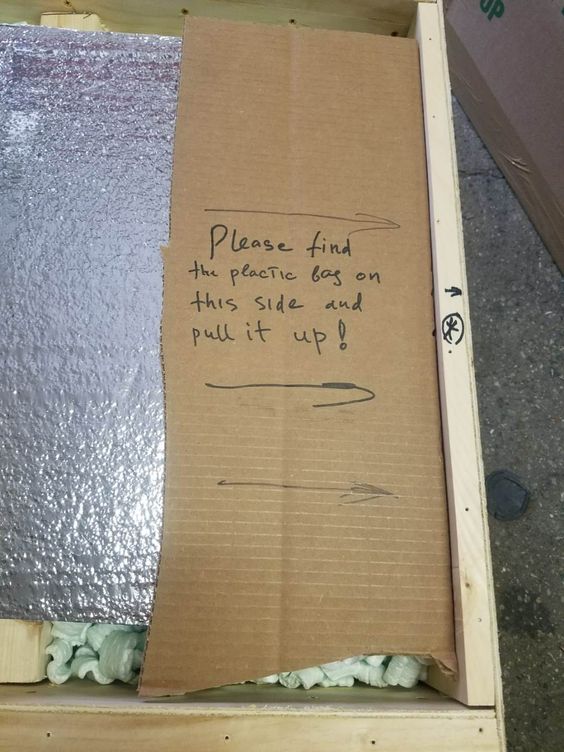 UP
Please find
the plactic bag on
this side and
pull it up!